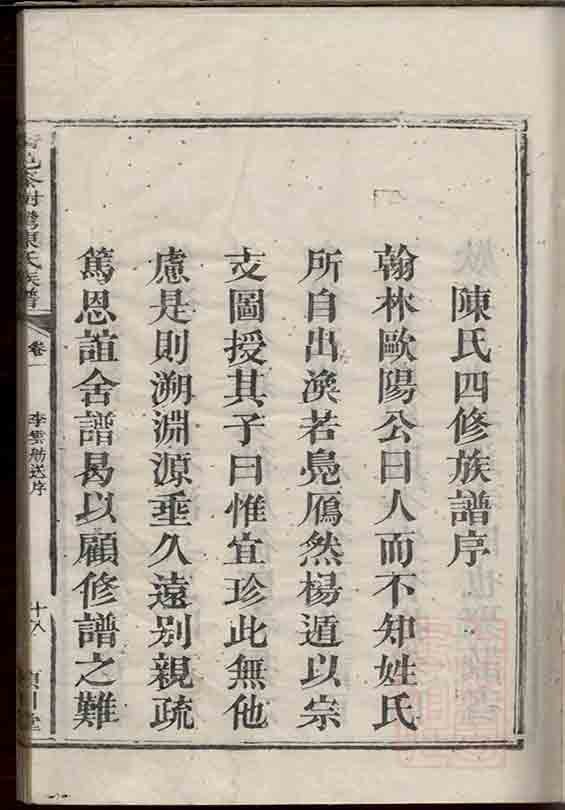 陳氏四修族譜序
翰林歐陽公曰人而不知姓氏
所自出渙若鳧鴈然楊遁以宗
支圖授其子曰惟宜珍此無他
慮是則溯淵源垂久遠别親疏
篤恩誼舍譜曷以顧修譜之難
陳氏族譜
卷一
李雲舫送序
十八